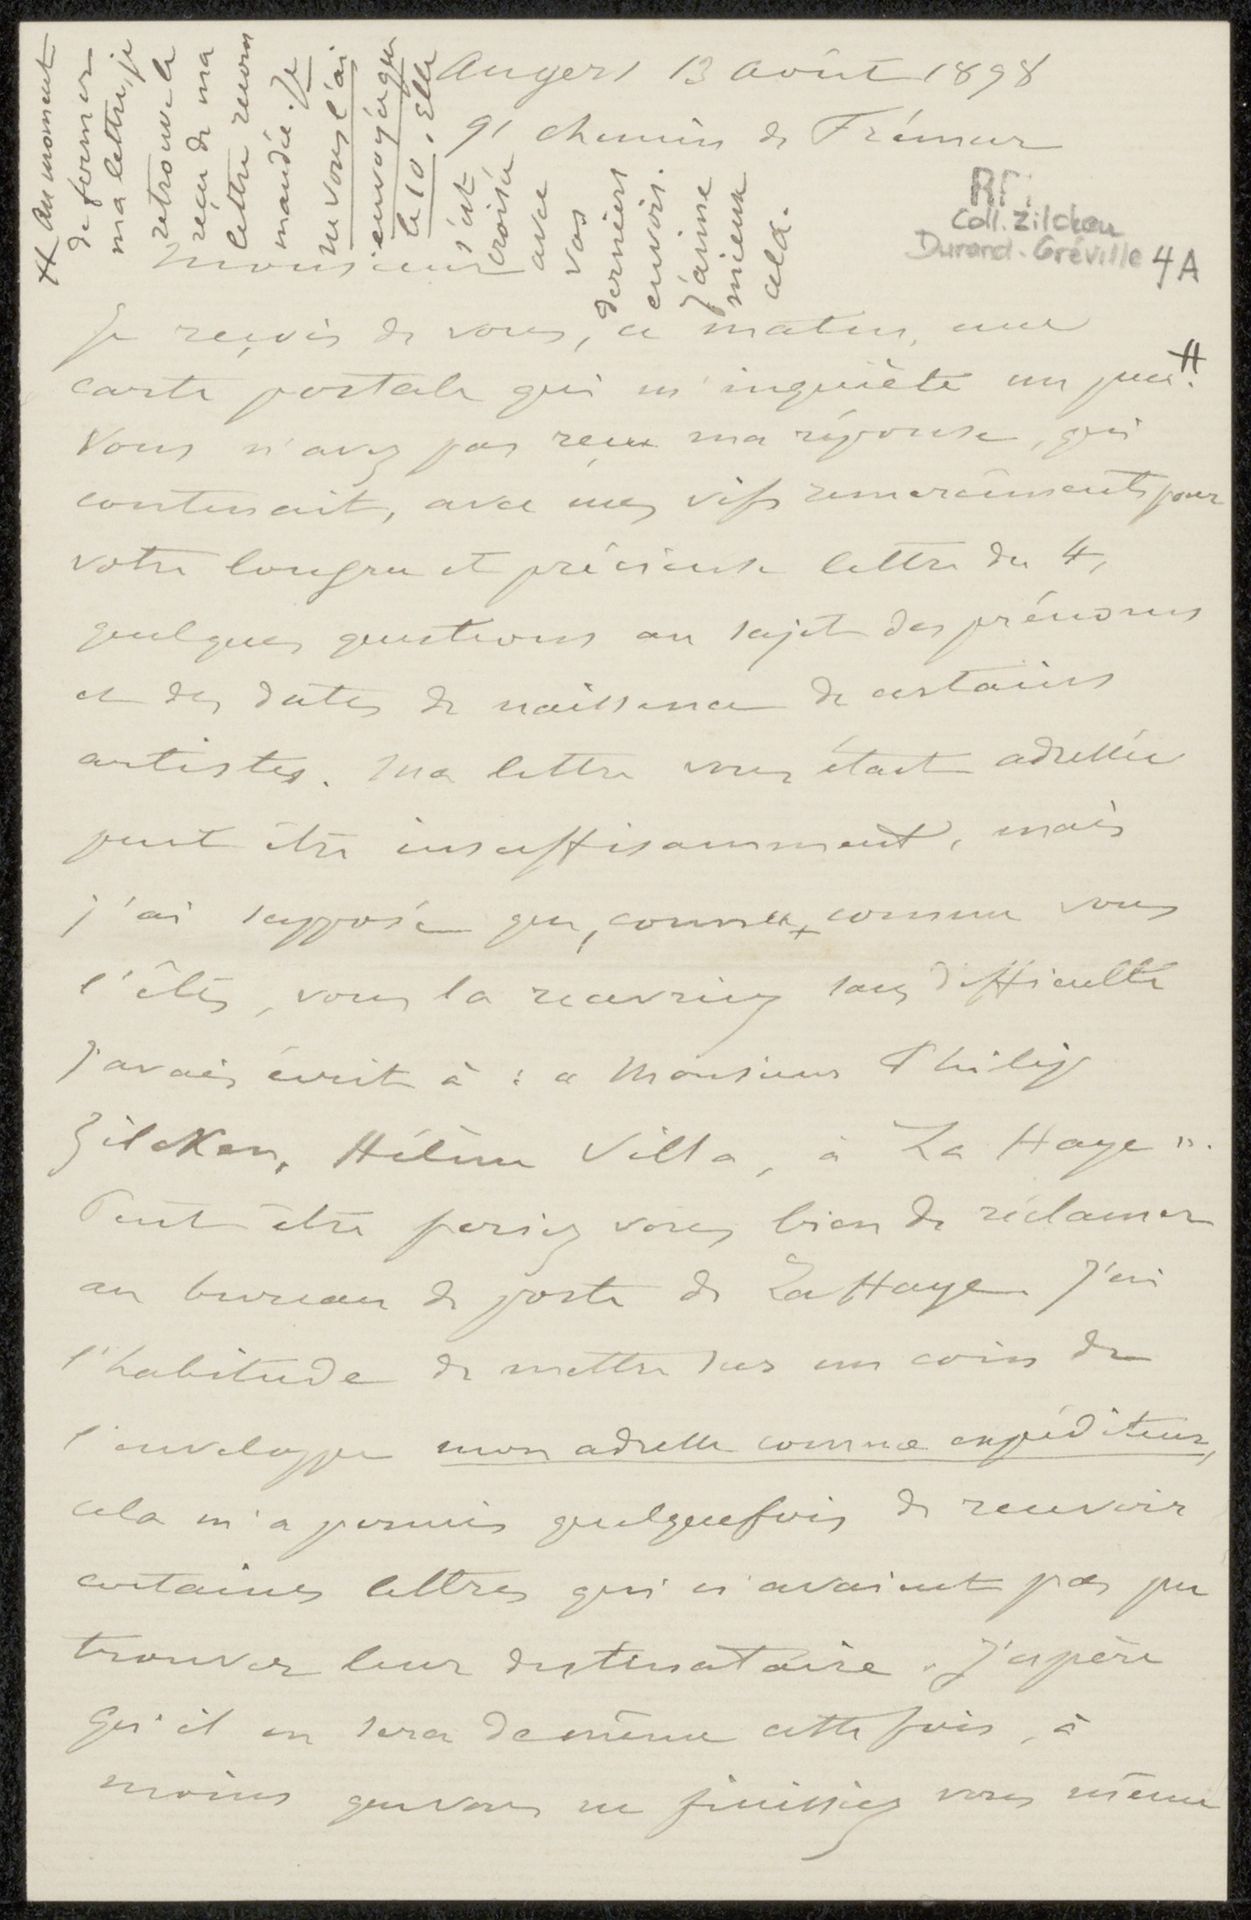 Angers 13 août 1898
91 chemin de Frémur
RP:
Coll. Zilcken
Durand-Gréville 4A
# Au moment
de fermer
ma lettre, je
retrouve le
reçu de ma
lettre recom
mandée. Je
ne vous l'ai
envoyée que
le 10. Elle
s'est
croisée
avec
vos
derniers
envois.
J'aime
mieux
cela.
Monsieur
Je reçois de vous, ce matin, une
carte postale qui m'inquiète un peu #.
Vous n'avez pas reçu ma réponse, qui
contenait, avec mes vifs remerciements pour
votre longue et précieuse lettre du 4,
quelques questions au sujet des prénoms
et des dates de naissance de certains
artistes. Ma lettre vous était adressée
peut être insuffisamment, mais
j'ai supposé que, connu comme vous
l'êtes, vous la recevriez sans difficulté
J'avais écrit à : « Monsieur Philip
Zilcken, Hélène Villa, à La Haye ".
Peut être feriez vous bien de réclamer
au bureau de poste de La Haye. J'ai
l'habitude de mettre sur un coin de
l'enveloppe mon adresse comme expéditeur,
cela m'a permis quelquefois de recevoir
certaines lettres qui n'avaient pas pu
trouver leur destinataire. J'espère
qu'il en sera de même cette fois, à
moins que vous ne finissiez vous même